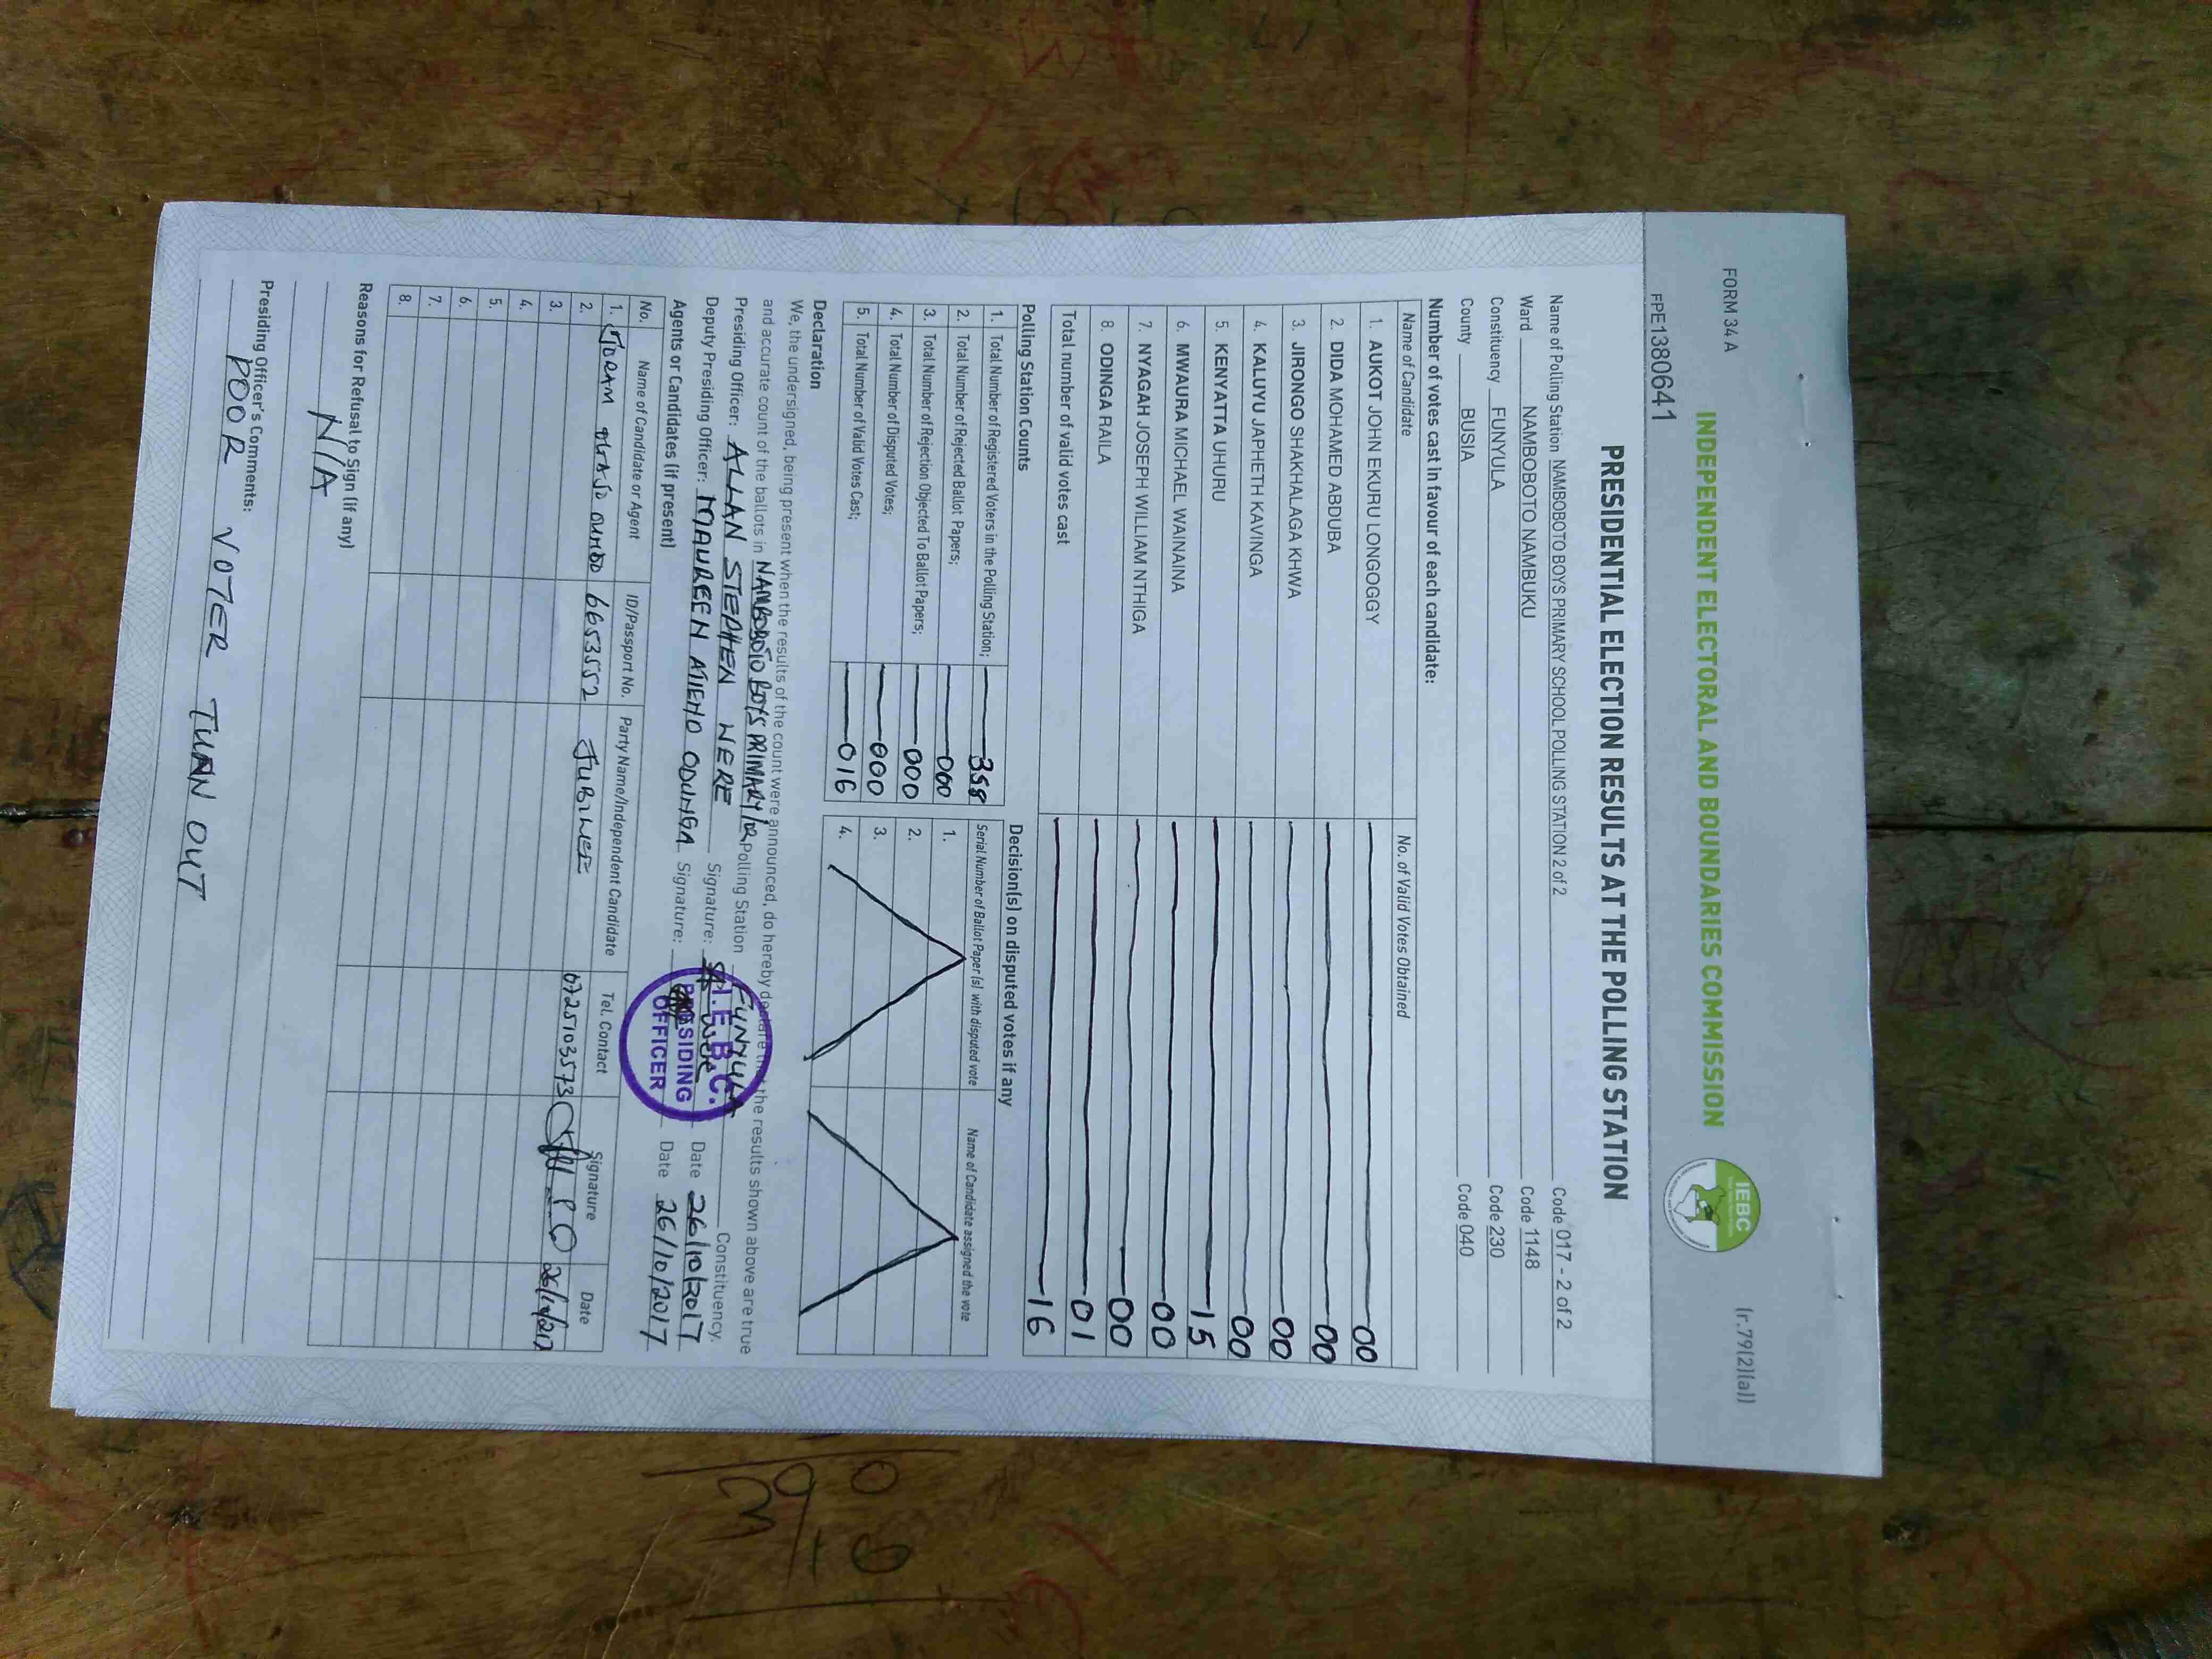 FORM 34 A
(r.79(2)(a))
INDEPENDENT ELECTORAL AND BOUNDARIES COMMISSION
IEBC
FPE1380641
PRESIDENTIAL ELECTION RESULTS AT THE POLLING STATION
Name of Polling Station NAMBOBOTO BOYS PRIMARY SCHOOL POLLING STATION 2 of 2 Code 017 - 2 of 2
Ward NAMBOBOTO NAMBUKU Code 1148
Constituency FUNYULA Code 230
County BUSIA Code 040
Number of votes cast in favour of each candidate:
Name of Candidate No. of Valid Votes Obtained
1. AUKOT JOHN EKURU LONGOGGY 00
2. DIDA MOHAMED ABDUBA 00
3. JIRONGO SHAKHALAGA KHWA 00
4. KALUYU JAPHETH KAVINGA 00
5. KENYATTA UHURU 15
6. MWAURA MICHAEL WAINAINA 00
7. NYAGAH JOSEPH WILLIAM NTHIGA 00
8. ODINGA RAILA 01
Total number of valid votes cast 16
Polling Station Counts
1. Total Number of Registered Voters in the Polling Station; 358
2. Total Number of Rejected Ballot Papers; 000
3. Total Number of Rejection Objected To Ballot Papers; 000
4. Total Number of Disputed Votes; 000
5. Total Number of Valid Votes Cast; 016
Decision(s) on disputed votes if any
Serial Number of Ballot Paper (s) with disputed vote Name of Candidate assigned the vote
1.
2.
3.
4.
Declaration
We, the undersigned, being present when the results of the count were announced, do hereby declare that the results shown above are true
and accurate count of the ballots in NAMBOBOTO BOYS PRIMARY Polling Station FUNYULA Constituency.
Presiding Officer: ALLAN STEPHEN WERE Signature: Date 26/10/2017
Deputy Presiding Officer: MAUREEN ATIENO ODUNGA Signature: Date 26/10/2017
I.E.B.C.
PRESIDING
OFFICER
Agents or Candidates (if present)
No. Name of Candidate or Agent ID/Passport No. Party Name/Independent Candidate Tel. Contact Signature Date
1. JORAM 6653552 JUBILEE 0725103573 26/10/2017
2.
3.
4.
5.
6.
7.
8.
Reasons for Refusal to Sign (if any)
N/A
Presiding Officer's Comments:
POOR VOTER TURN OUT